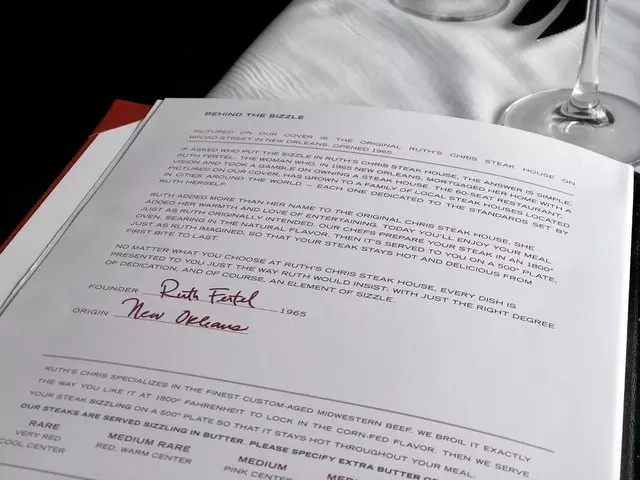 BEHIND THE SIZZLE
PICTURED ON OUR COVER IS THE ORIGINAL RUTH'S CHRIS STEAK HOUSE ON
BROAD STREET IN NEW ORLEANS, OPENED 1965.
IF ASKED WHO PUT THE SIZZLE IN RUTH'S CHRIS STEAK HOUSE, THE ANSWER IS SIMPLE.
RUTH FERTEL. THE WOMAN WHO, IN 1965 NEW ORLEANS, MORTGAGED HER HOME WITH A
VISION AND TOOK A GAMBLE ON OWNING A STEAK HOUSE. THE 60-SEAT RESTAURANT,
PICTURED ON OUR COVER, HAS GROWN TO A FAMILY OF LOCAL STEAK HOUSES LOCATED
IN CITIES AROUND THE WORLD — EACH ONE DEDICATED TO THE STANDARDS SET BY
RUTH HERSELF.
RUTH ADDED MORE THAN HER NAME TO THE ORIGINAL CHRIS STEAK HOUSE, SHE
ADDED HER WARMTH AND LOVE OF ENTERTAINING. TODAY YOU'LL ENJOY YOUR MEAL
JUST AS RUTH ORIGINALLY INTENDED. OUR CHEFS PREPARE YOUR STEAK IN AN 1800°
OVEN, SEARING IN THE NATURAL FLAVOR. THEN IT'S SERVED TO YOU ON A 500° PLATE,
JUST AS RUTH IMAGINED, SO THAT YOUR STEAK STAYS HOT AND DELICIOUS FROM
FIRST BITE TO LAST.
NO MATTER WHAT YOU CHOOSE AT RUTH'S CHRIS STEAK HOUSE, EVERY DISH IS
PRESENTED TO YOU JUST THE WAY RUTH WOULD INSIST: WITH JUST THE RIGHT DEGREE
OF DEDICATION, AND OF COURSE, AN ELEMENT OF SIZZLE.
FOUNDER Ruth Fertel 1965
ORIGIN New Orleans
RUTH'S CHRIS SPECIALIZES IN THE FINEST CUSTOM-AGED MIDWESTERN BEEF. WE BROIL IT EXACTLY
THE WAY YOU LIKE IT AT 1800° FAHRENHEIT TO LOCK IN THE CORN-FED FLAVOR. THEN WE SERVE
YOUR STEAK SIZZLING ON A 500° PLATE SO THAT IT STAYS HOT THROUGHOUT YOUR MEAL.
OUR STEAKS ARE SERVED SIZZLING IN BUTTER. PLEASE SPECIFY EXTRA BUTTER OR
RARE MEDIUM RARE MEDIUM
VERY RED RED, WARM CENTER PINK CENTER
COOL CENTER